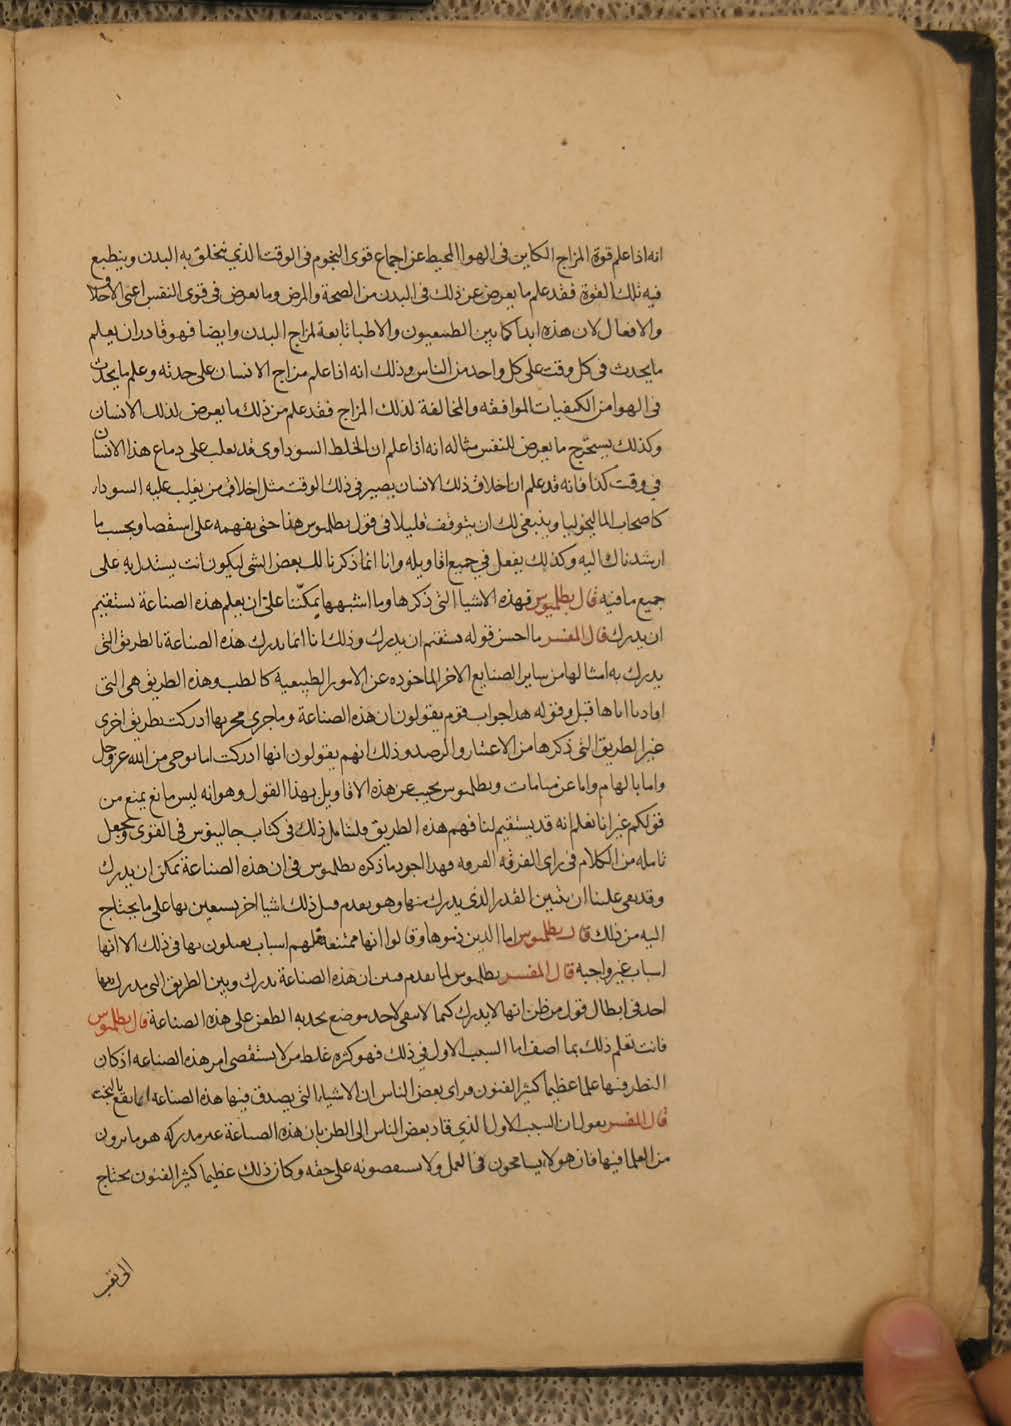 انه اذا علم قوة المزاج الكاين فى الهوا المحيط عن اجماع قوى النجوم فى الوقت الذي تتخلق به البدن وينطبع
فيه تلك القوة فقد علم ما يعرض عن ذلك فى البدن من الصحة والمرض وما يعرض فى قوى النفس اعنى الاخلاق
والافعال لان هذه ابدا كما يبين الطبيعيون والاطبا تابعة لمزاج البدن وايضا فهو قادر ان يعلم
ما يحدث فى كل وقت على كل واحد من الناس وذلك انه اذا علم مزاج الانسان على حدته وعلم ما يحدث
فى الهوا من الكيفيات الموافقه والمخالفة لذلك المزاج فقد علم من ذلك ما يعرض لذلك الانسان
وكذلك يستخرج ما يعرض للنفس مثاله انه اذا علم ان الخلط السوداوى قد يغلب على دماغ هذا الانسان
في وقت كذا فانه قد علم ان اخلاق ذلك الانسان يصير فى ذلك الوقت مثل اخلاق من يغلب عليه السودا
كاصحاب الماليخوليا وينبغى لك ان يتوقف قليلا فى قول بطلميوس هذا حتى يفهمه على استقصا وبحسب ما
ارشدناك اليه وكذلك يفعل في جميع اقاويله وانا انما ذكرنا لك بعض الشى ليكون انت يستدل به على
جميع ما فيه قال بطلميوس فهذه الاشيا التى ذكرها وما اشبهها يمكننا على ان يعلم هذه الصناعة يستقيم
ان يدرك قال المفسر ما احسن قوله يستقيم ان يدرك وذلك انا انما يدرك هذه الصناعة بالطريق التى
يدرك به امثالها من ساير الصنايع الاخر الماخوده عن الامور الطبيعية كالطب وهذه الطريق هى التى
افادنا اياها قبل وقوله هذا جواب قوم يقولون ان هذه الصناعة وما جرى مجريها ادركت بطريق اخرى
غير الطريق التى ذكرها من الاعتبار والرصد وذلك انهم يقولون انها ادركت اما بوحى من الله عز وجل
واما بالهام واما عن منامات وبطلميوس يجيب عن هذه الاقاويل بهذا القول وهو انه ليس مانع يمنع من
قولكم غير انا نعلم انه قد يستقيم لنا فهم هذه الطريق فلنامل ذلك فى كتاب جالينوس فى القوى ويجعل
تامله من الكلام فى راى الفرقه فهذا الجود ما ذكره بطلميوس فى ان هذه الصناعة يمكن ان يدرك
وقد بقى علينا ان نتبين القدر الذى يدرك منها وهو يقدم قبل ذلك اشيا اخر يستعين بها على ما يحتاج
اليه من ذلك قال بطلميوس اما الذين ذموها وقالوا انها ممتنعة فلهم اسباب يعتلون بها فى ذلك الا انها
اسباب غير واجبه قال المفسر بطلميوس لما تقدم فبين ان هذه الصناعة يدرك وبين الطريق التى يدرك بها
احد فى ابطال قول من ظن انها لا يدرك كيما لا يبقى لاحد موضع يجد به الطعن على هذه الصناعة قال بطلميوس
فانت تعلم ذلك بما اصف اما السبب الاول في ذلك فهو كثره غلط من لا يستقصى امر هذه الصناعه اذ كان
النظر فيها علما عظيما كثير الفنون فراى بعض الناس ان الاشياء التى يصدق فيها هذه الصناعه انما يقع بالبخت
قال المفسر يقول ان السبب الاول الذي قاد بعض الناس الى الظن بان هذه الصناعة غير مدركه هو ما يرون
من العلما فيها فان هولا يسامحون فى العمل ولا يستقصونه على حقه وكان ذلك عظيما كثير الفنون يحتاج
الى تعب